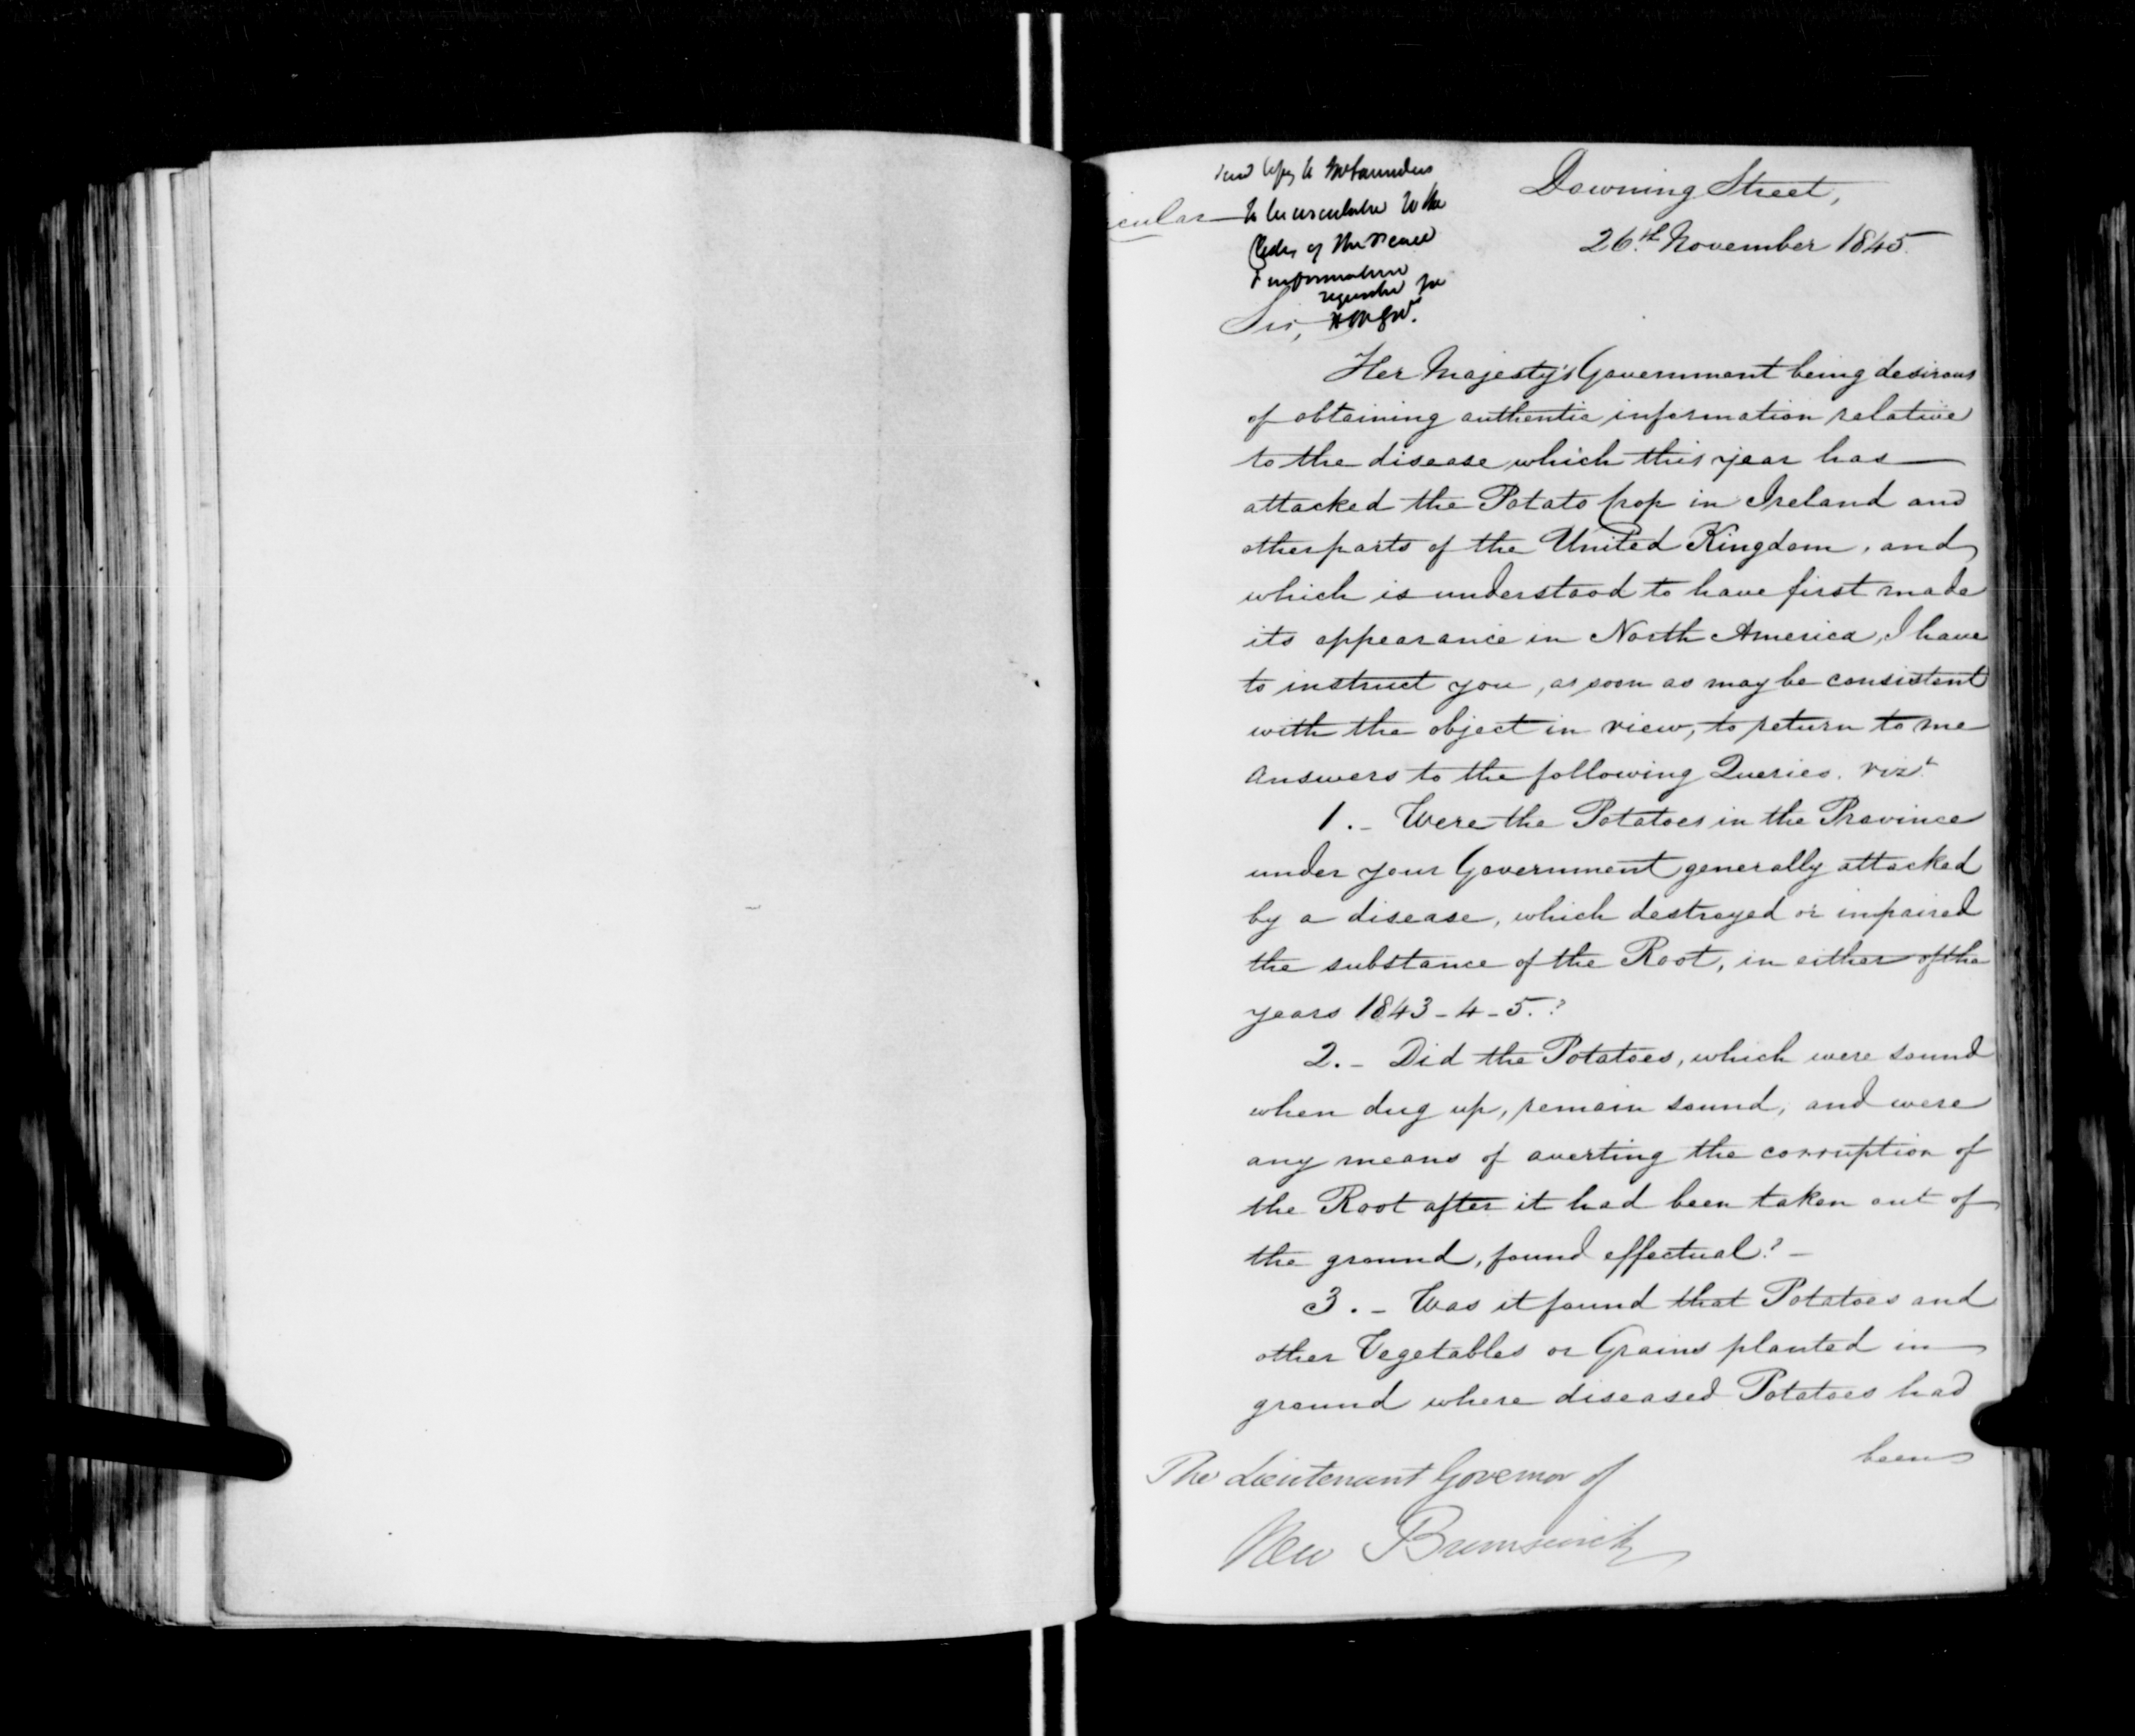 Send Copy to Mr Saunders
cular to be circulated to the
Clerks of the Peace
& information
required for
H M Govt.
Downing Street,
26th November 1845.
Sir,
Her Majesty's Government being desirous
of obtaining authentic information relative
to the disease which this year has
attacked the Potato Crop in Ireland and
other parts of the United Kingdom, and
which is understood to have first made
its appearance in North America, I have
to instruct you, as soon as may be consistent
with the object in view, to return to me
answers to the following Queries. vizt.
1.- Were the Potatoes in the Province
under your Government generally attacked
by a disease, which destroyed or impaired
the substance of the Root, in either of the
years 1843-4-5.?
2.- Did the Potatoes, which were sound
when dug up, remain sound, and were
any means of averting the corruption of
the Root after it had been taken out of
the ground, found effectual?-
3.- Was it found that Potatoes and
other Vegetables or Grains planted in
ground where diseased Potatoes had
been
The Lieutenant Governor of
New Brunswick